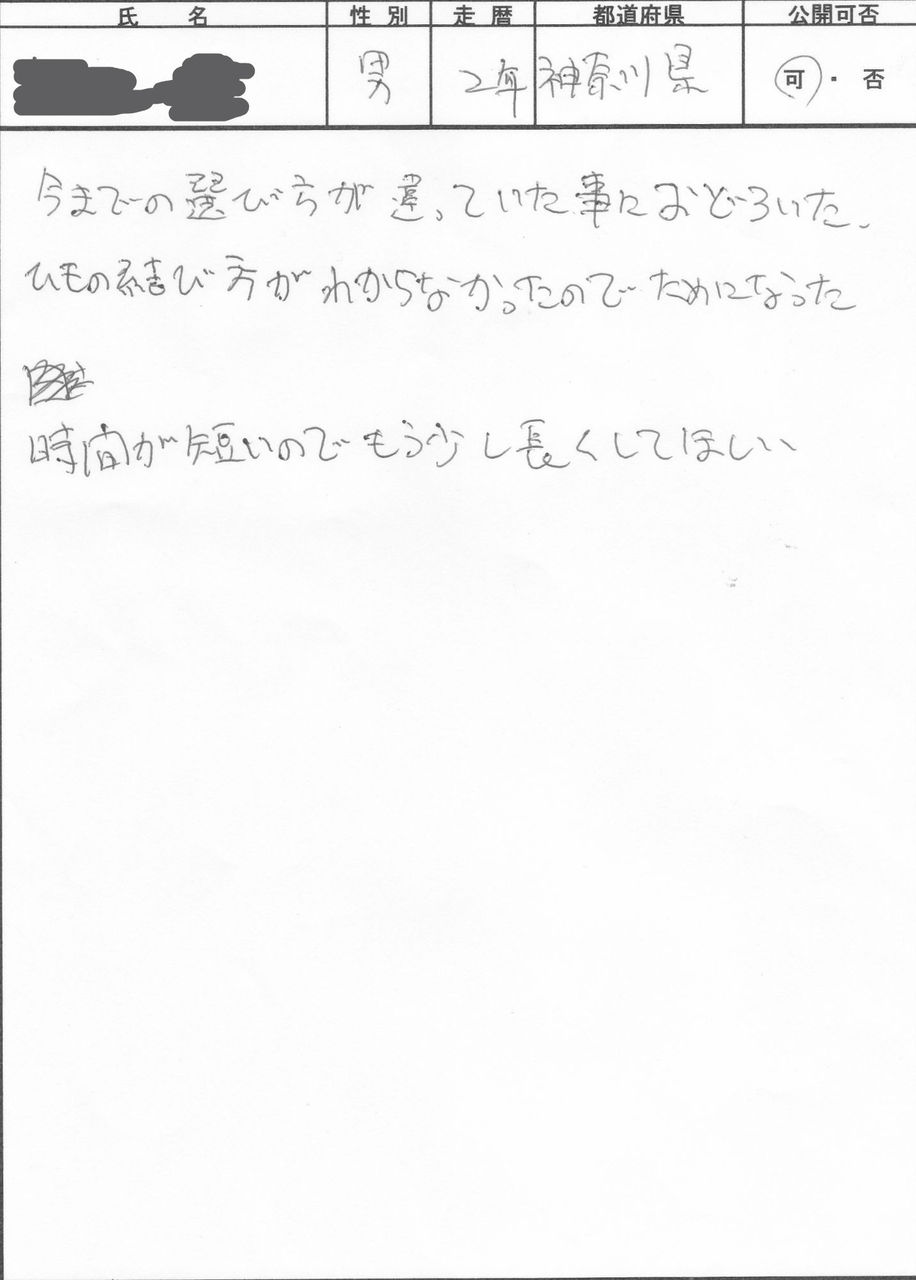 氏 名 性別 走暦 都道府県 公開可否
男 2年 神奈川県 可・否
今までの選び方が違っていた事におどろいた、
ひもの結び方がわからなかったのでためになった
時間が短いのでもう少し長くしてほしい、